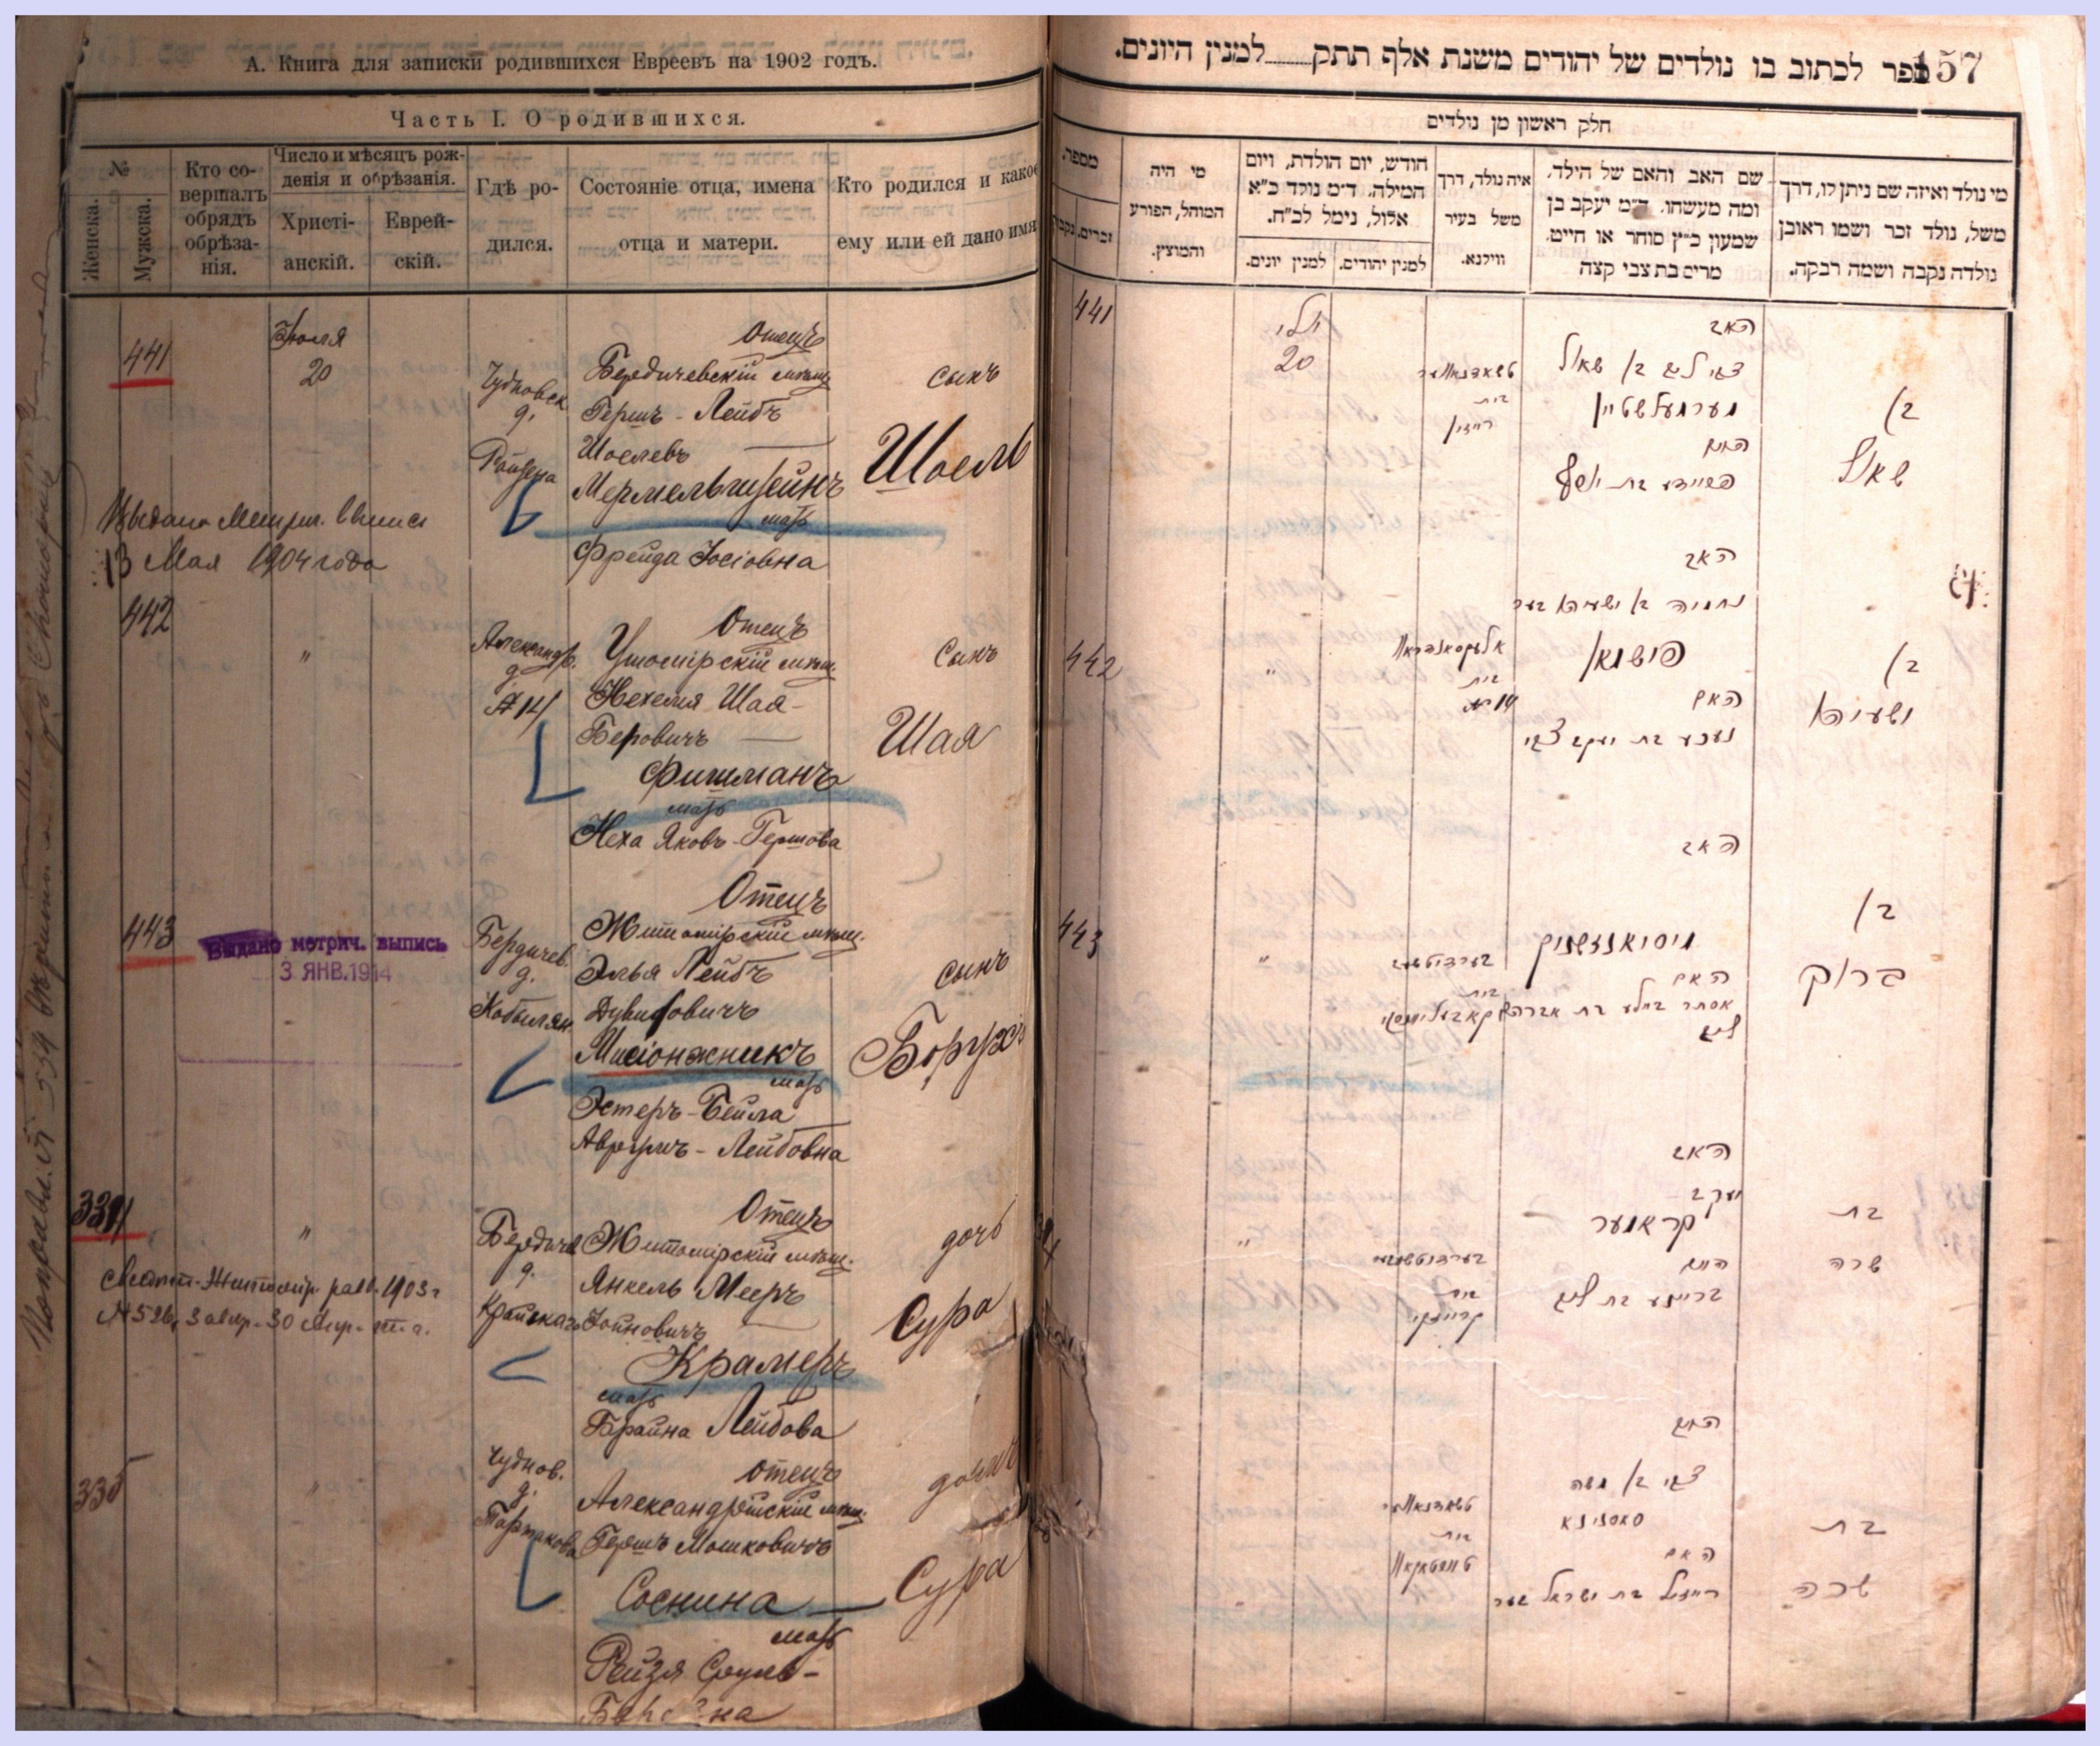 А. Книга для записки родившихся Евреевъ на 1902 годъ.
Часть I. О родившихся.
№
Женска.
Мужска.
Кто совершалъ обрядъ обрѣзанія.
Число и мѣсяцъ рожденія и обрѣзанія.
Христіанскій.
Еврейскій.
Гдѣ родился.
Состояніе отца, имена отца и матери.
Кто родился и какое ему или ей дано имя
441
Іюля
20
Чудновск.
д.
Ройзена
Отецъ
Бердичевскій мѣщ.
Гершъ-Лейбъ
Шоелевъ
Мермельштейнъ
мать
Фрейда Іосіовна
сынъ
Шоель
Выдана Метрич. выпись
13 Мая 1904 года
442
"
Александр.
д.
№ 14
Отецъ
Ушомірскій мѣщ.
Нехемія Шая-
Беровичъ
Фишманъ
мать
Неха Яковъ-Гершова
сынъ
Шая
443
Выдано метрич. выпись
3 ЯНВ. 1914
Бердичев.
д.
Кобылян.
Отецъ
Житомірскій мѣщ.
Элья Лейбъ
Дувидовичъ
Мисіонжникъ
мать
Эстеръ-Бейла
Аврумъ-Лейбовна
сынъ
Борухъ
334
"
Бердичев
д.
Крайскаго
Отецъ
Житомірскій мѣщ.
Янкель Мееръ
Іойновичъ
Крамеръ
мать
Брайна Лейбова
дочь
Сура
335
"
Чуднов.
д.
Тартакова
отецъ
Александрійскій мѣщ.
Гершъ Мошковичъ
Соснина
мать
Рейзя Сруль-
дочь
Сура
157
ספר לכתוב בו נולדים של יהודים משנת אלף תתק למנין היונים.
חלק ראשון מן נולדים
מספר.
זכרים.
נקבות
מי היה המוהל, הפורע והמוצץ.
חודש, יום הולדת, ויום המילה. ד״מ נולד כ״א אלול, נימל לכ״ח.
למנין יונים.
למנין יהודים.
איה נולד, דרך משל בעיר ווילנא.
שם האב והאם של הילד, ומה מעשהו. ד״מ יעקב בן שמעון כ״ץ סוחר או חייט. מרים בת צבי קצה
מי נולד ואיזה שם ניתן לו, דרך משל, נולד זכר ושמו ראובן נולדה נקבה ושמה רבקה.
441
יולי
20
בית
רייזין
האב
צבי ליב בן שאול
מערמעלשטיין
האם
פריידע בת יוסף
בן
שאול
442
"
בית
№ 14
האב
נחמיה בן ישעיהו בער
פישמאן
האם
נעכע בת יעקב צבי
בן
ישעיהו
443
"
בית
האב
מיסיאנזשניק
האם
אסתר ביילע בת אברהם
ליב
בן
ברוך
"
בית
האב
יעקב
קראמער
האם
בריינע בת ליב
בת
שרה
בית
האב
צבי בן משה
סאסנינא
האם
רייזיל בת ישראל בער
בת
שרה